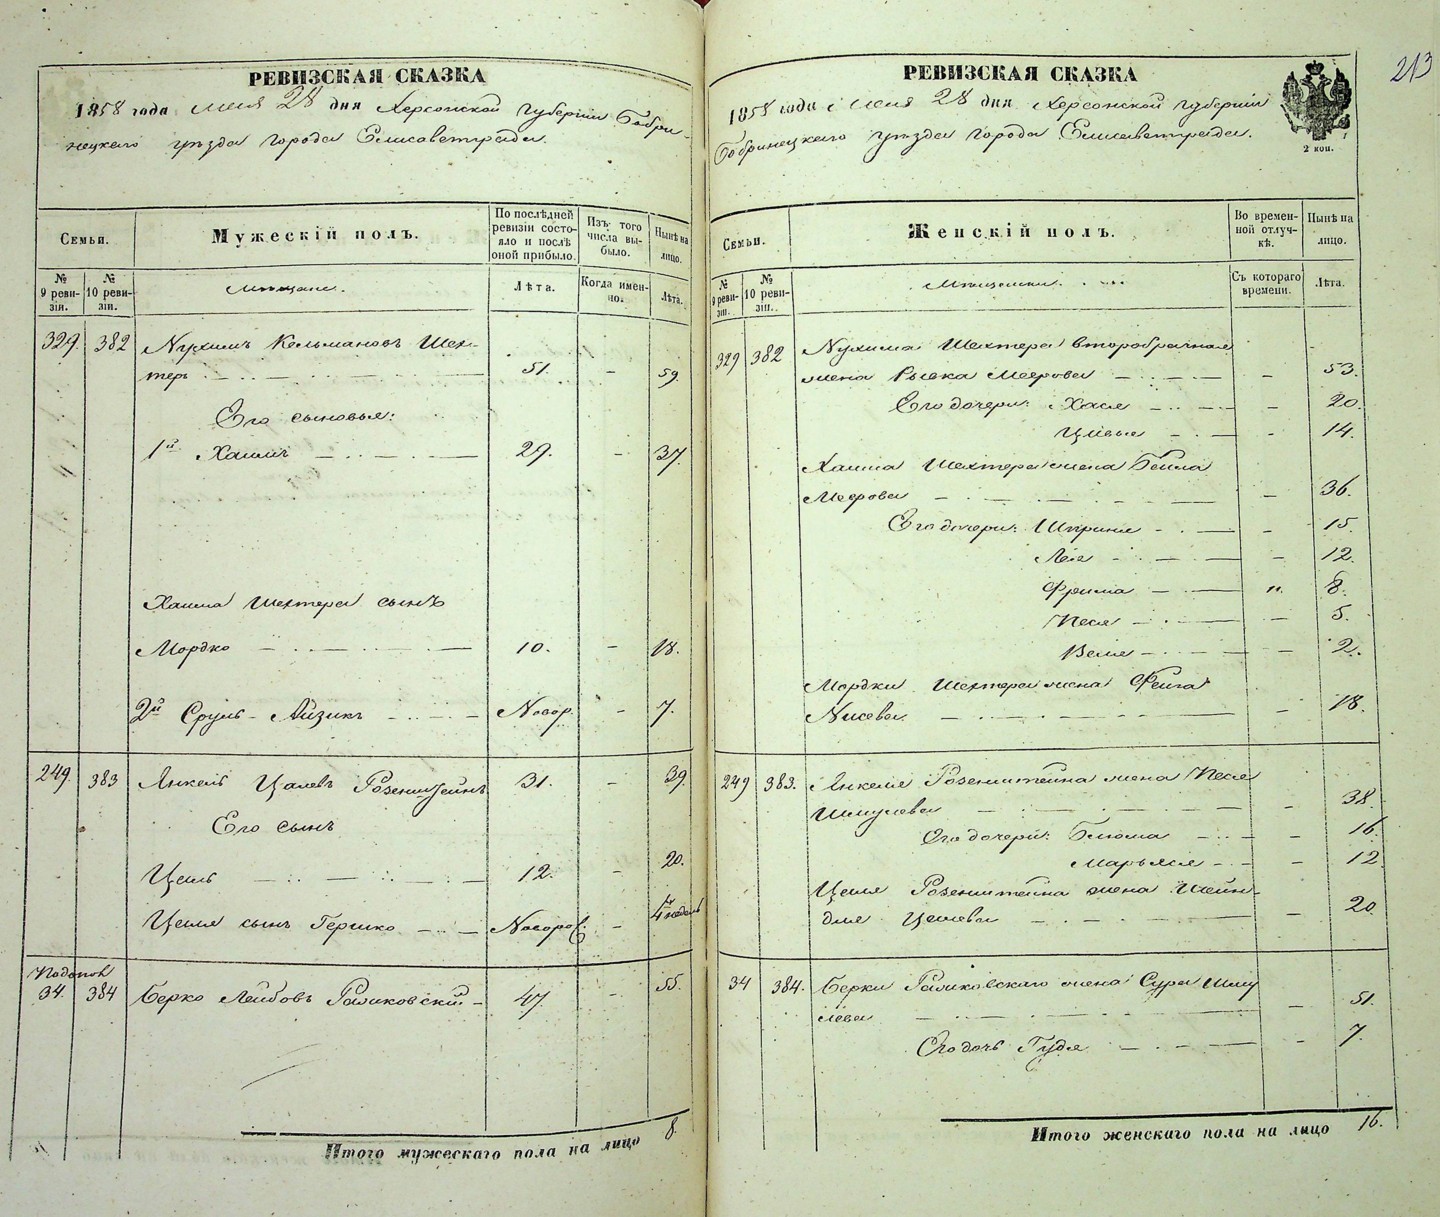 213
РЕВИЗСКАЯ СКАЗКА
1858 года Мая 28 дня Херсонской губернии Бобри-
нецкаго уѣзда города Елисаветграда.
Семьи.
Мужескій полъ.
По послѣдней ревизіи состо-
яло и послѣ оной прибыло.
Изъ того числа вы-
было.
Нынѣ на лицо.
№ 9 реви-
зіи.
№ 10 реви-
зіи.
Мѣщане.
Лѣта.
Когда имен-
но.
Лѣта.
329. 382 Нухимъ Кельмановъ Шех-
теръ 51. – 59.
Его сыновья:
1й Хаимъ 29. – 37.
Хаима Шехтера сынъ
Мордко 10. – 18.
2й Сруль-Айзикъ Новор. – 7.
249. 383 Янкель Цалевъ Розенштейнъ 31. – 39.
Его сынъ
Цаль 12. – 20.
Цаля сынъ Гершко Новоро. – 4 недель
34. 384 Берко Лейбовъ 47. – 55.
Итого мужескаго пола на лицо 8.
РЕВИЗСКАЯ СКАЗКА
1858 года Мая 28 дня Херсонской губерніи
Бобринецкаго уѣзда города Елисаветграда.
2 коп.
Семьи.
Женскій полъ.
Во времен-
ной отлуч-
кѣ.
Нынѣ на лицо.
№ 9 реви-
зіи.
№ 10 реви-
зіи.
Мѣщанки.
Съ котораго времени.
Лѣта.
329 382 Нухима Шехтера второбрачная
жена Рывка Меерова – 53.
Его дочери: Хася – 20.
Цивья – 14.
Хаима Шехтера жена Бейла
Меерова – 36.
Его дочери: Шпринца – 15.
Лея – 12.
Фрима „ 8.
Песя – 5.
Веля – 2.
Мордки Шехтера жена Фейга
– 18.
249 383. Янкеля Розенштейна жена Песя
Шмулева – 38.
Его дочери: Блюма – 16.
Марьяся – 12
Цаля Розенштейна жена Шейн-
для – 20.
34 384. Берки жена Сура Шму
лева – 51.
Его дочь Гудя – 7.
Итого женскаго пола на лицо 16.